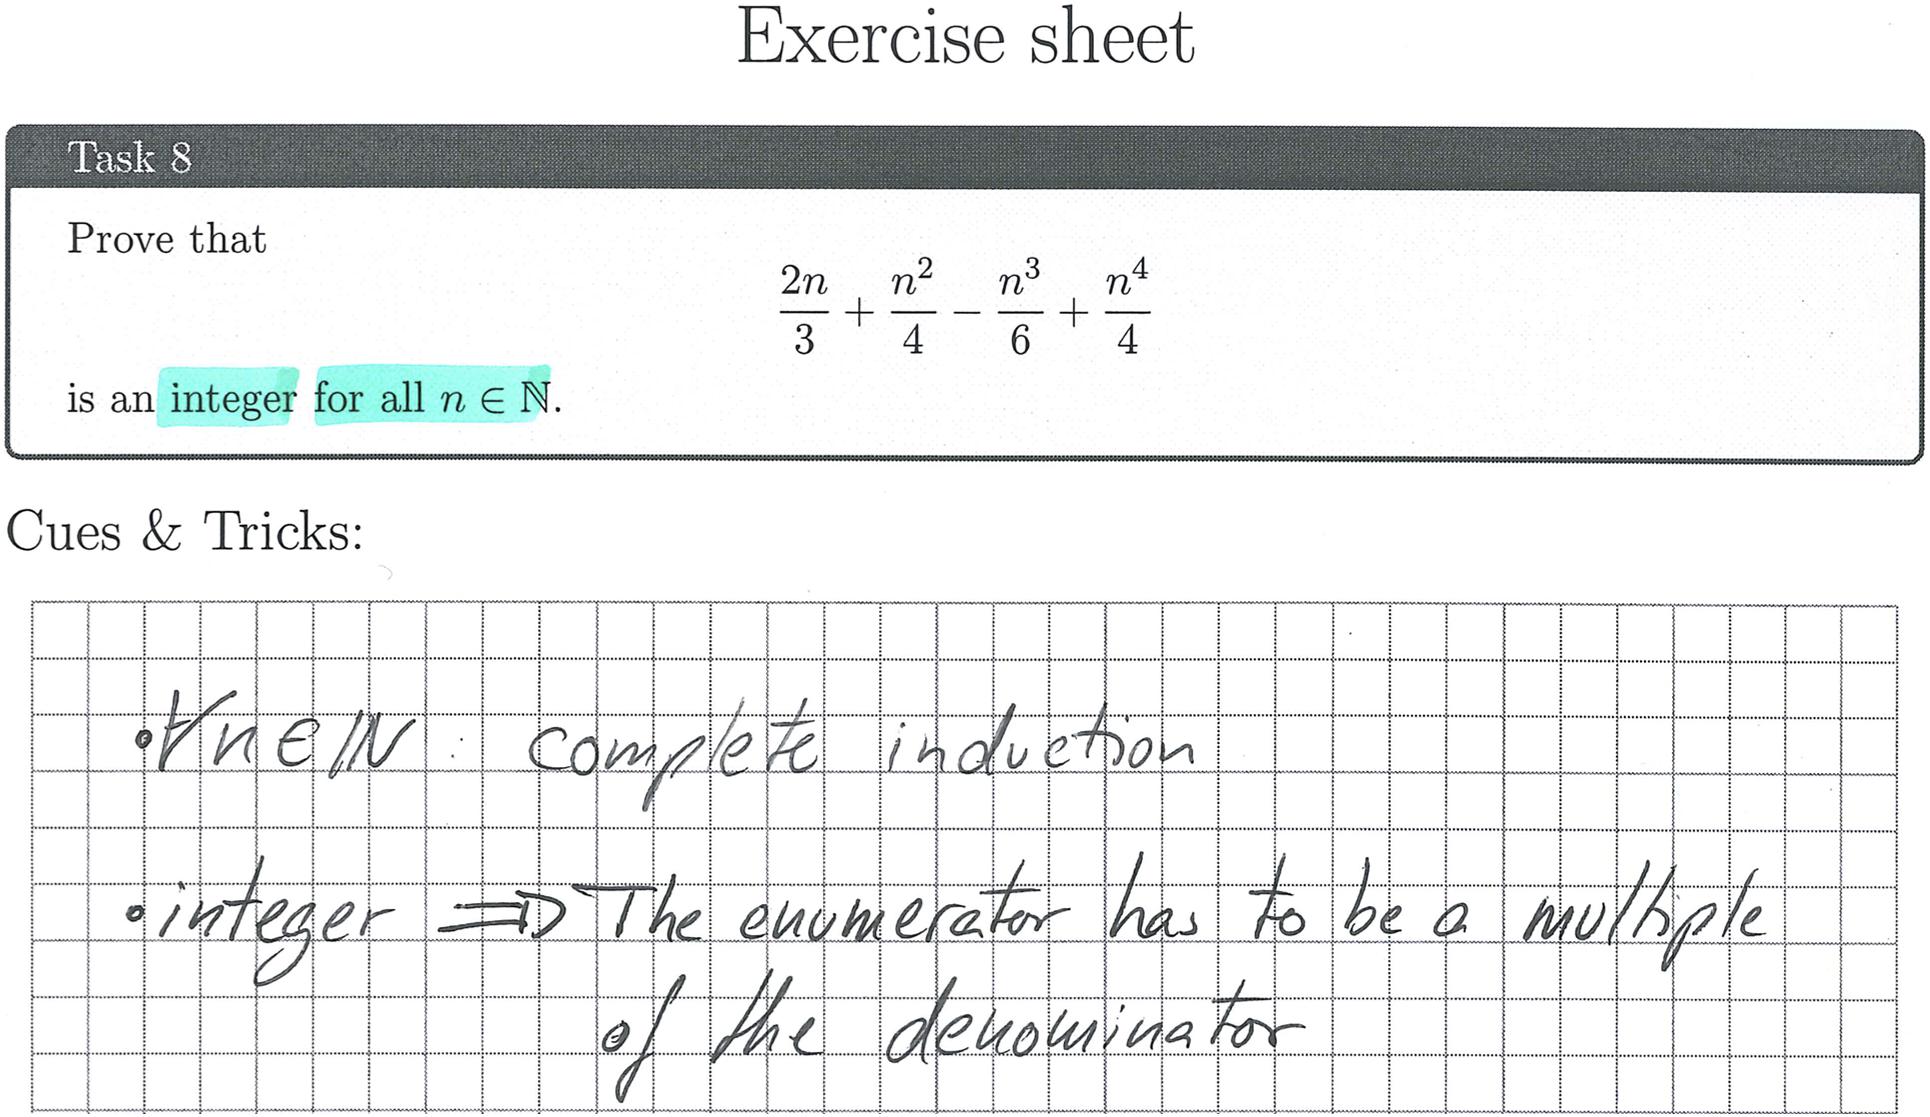 Exercise sheet
Task 8
Prove that
2n/3 + n²/4 − n³/6 + n⁴/4
is an integer for all n ∈ ℕ.
Cues & Tricks:
• ∀n∈ℕ : complete induction
• integer ⇒ The enumerator has to be a multiple
of the denominator